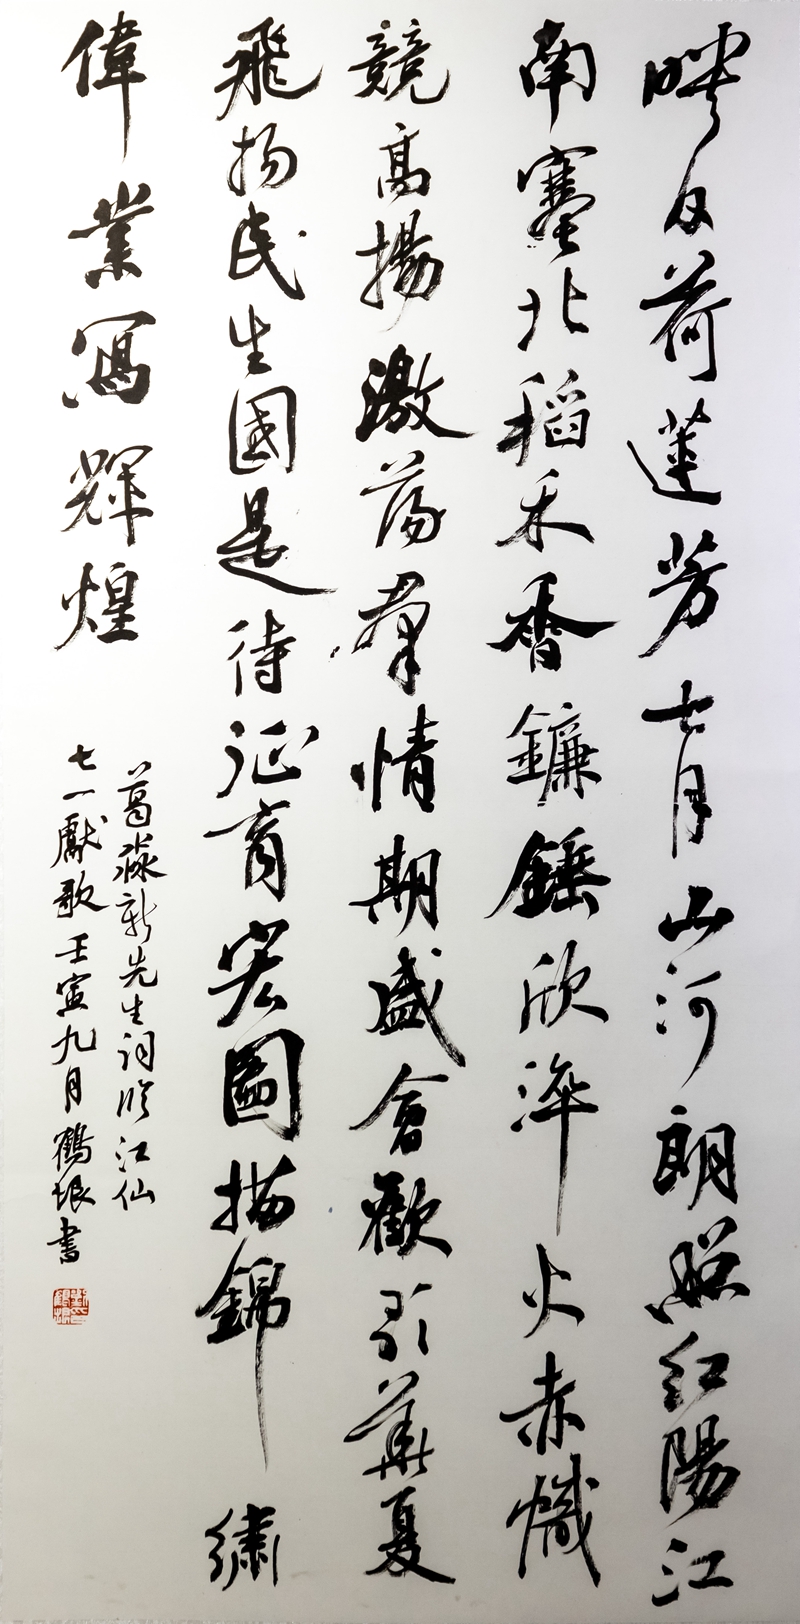 映日荷蓮芳七月山河朗照红陽江
南塞北稻禾香鐮錘欣淬火赤幟
競高揚激荡群情期盛會歡引華夏
飛扬民生國是待征商宏圖描錦繡
偉業寫輝煌
葛淼新先生詞臨江仙
七一獻歌壬寅九月鶴垠書